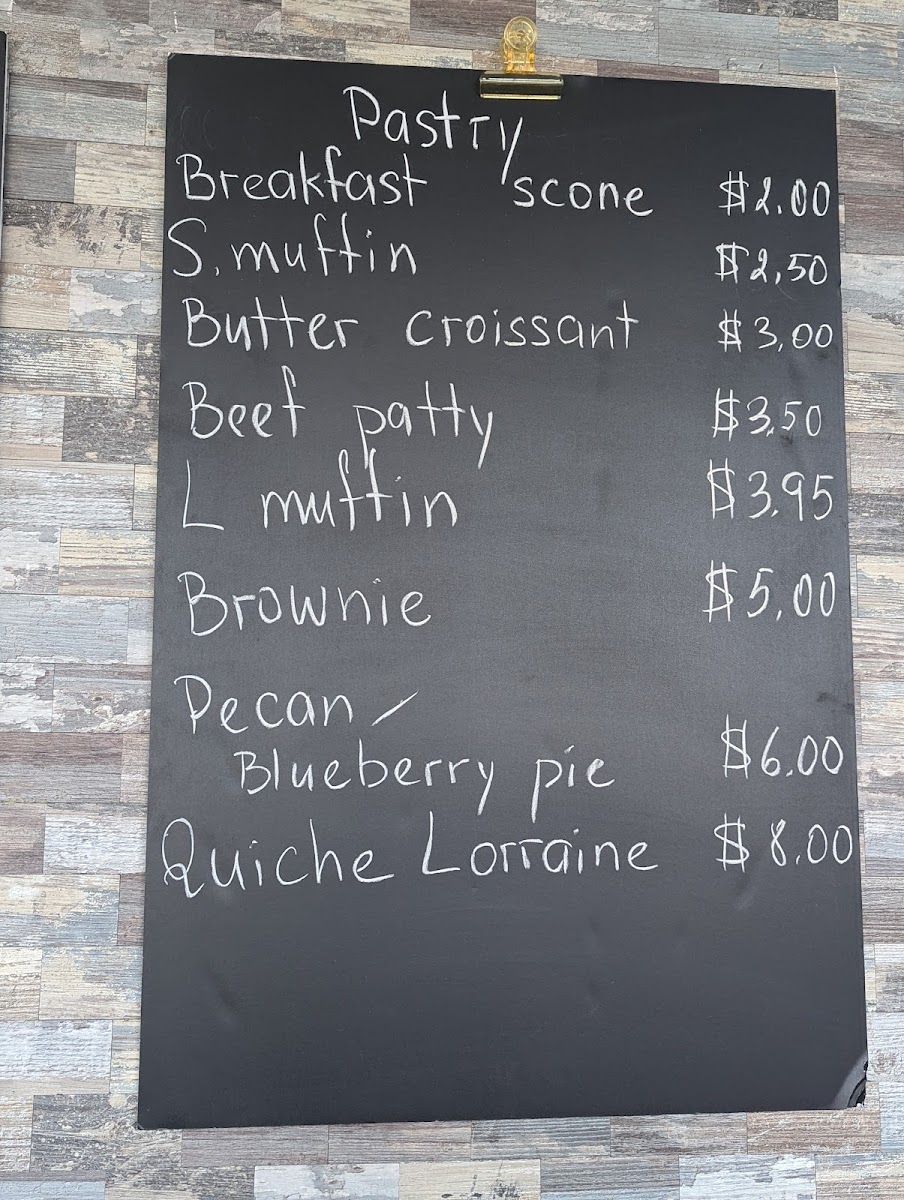 Pastry
Breakfast scone $2.00
S. muffin $2,50
Butter croissant $3,00
Beef patty $3.50
L muffin $3.95
Brownie $5,00
Pecan /
Blueberry pie $6.00
Quiche Lorraine $8.00